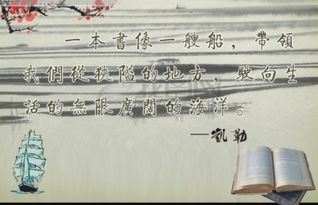 一本書像一艘船，帶領
我們從狹隘的地方，駛向生
活的無限廣闊的海洋。
——凱勒